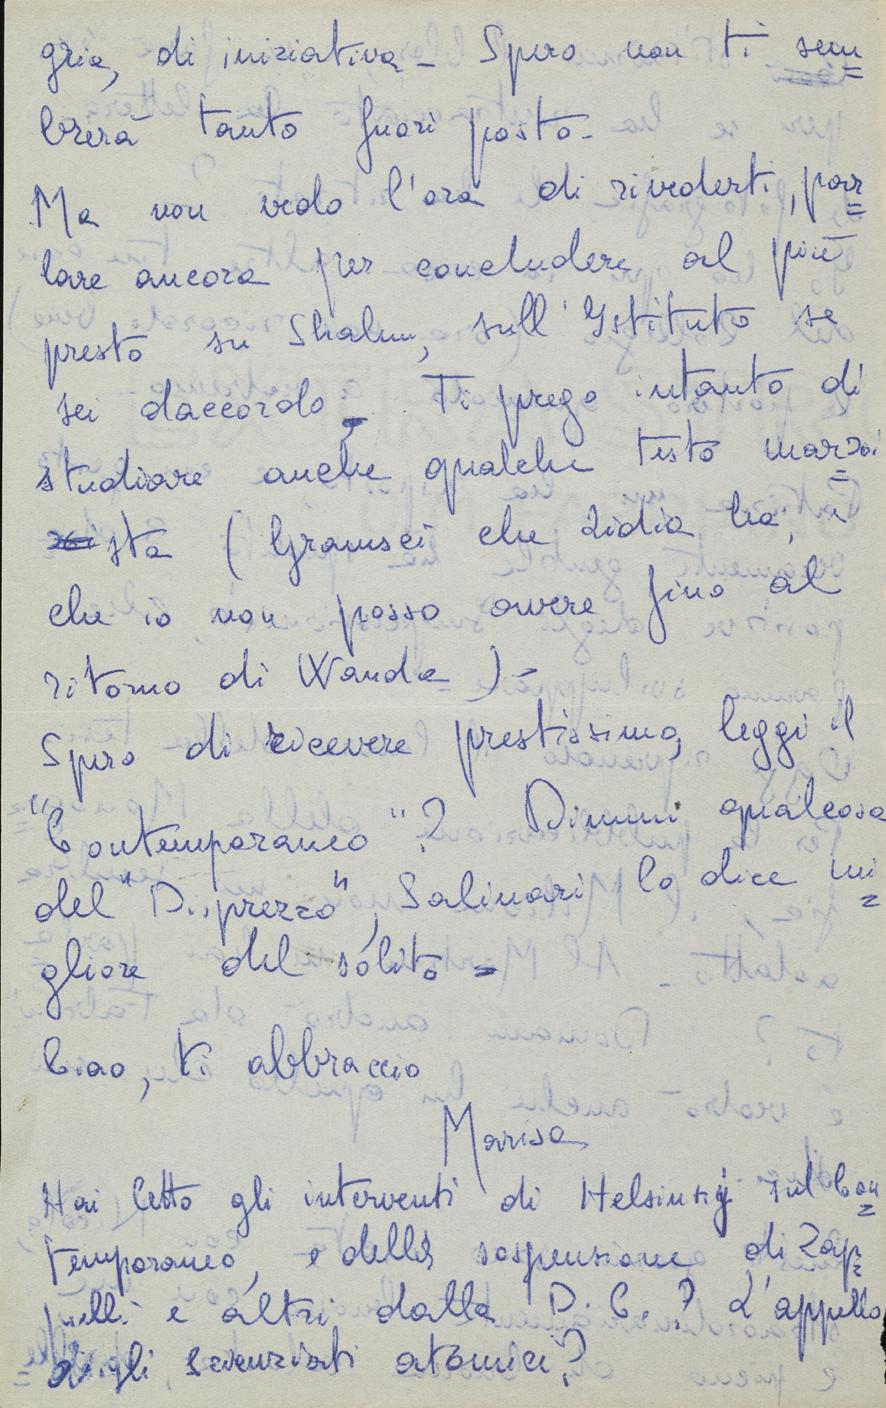 gria, di iniziativa - Spero non ti sem=
brerà tanto fuori posto -
Ma non vedo l'ora di rivederti, par=
lare ancora per concludere al più
presto su Shalom, sull'Istituto se
sei daccordo - Ti prego intanto di
studiare anche qualche testo marxi=
sta (Gramsci che Lidia ha, e
che io non posso avere fino al
ritorno di Wanda) -
Spero di ricevere prestissimo, leggi il
"Contemporaneo"? Dimmi qualcosa
del "Disprezzo", Salinari lo dice mi=
gliore del solito -
Ciao, ti abbraccio
Marisa
Hai letto gli interventi di Helsinky sul Con=
temporaneo, e della sospensione di Zap=
pulli e altri dalla D.C.? L'appello
degli scienziati atomici?